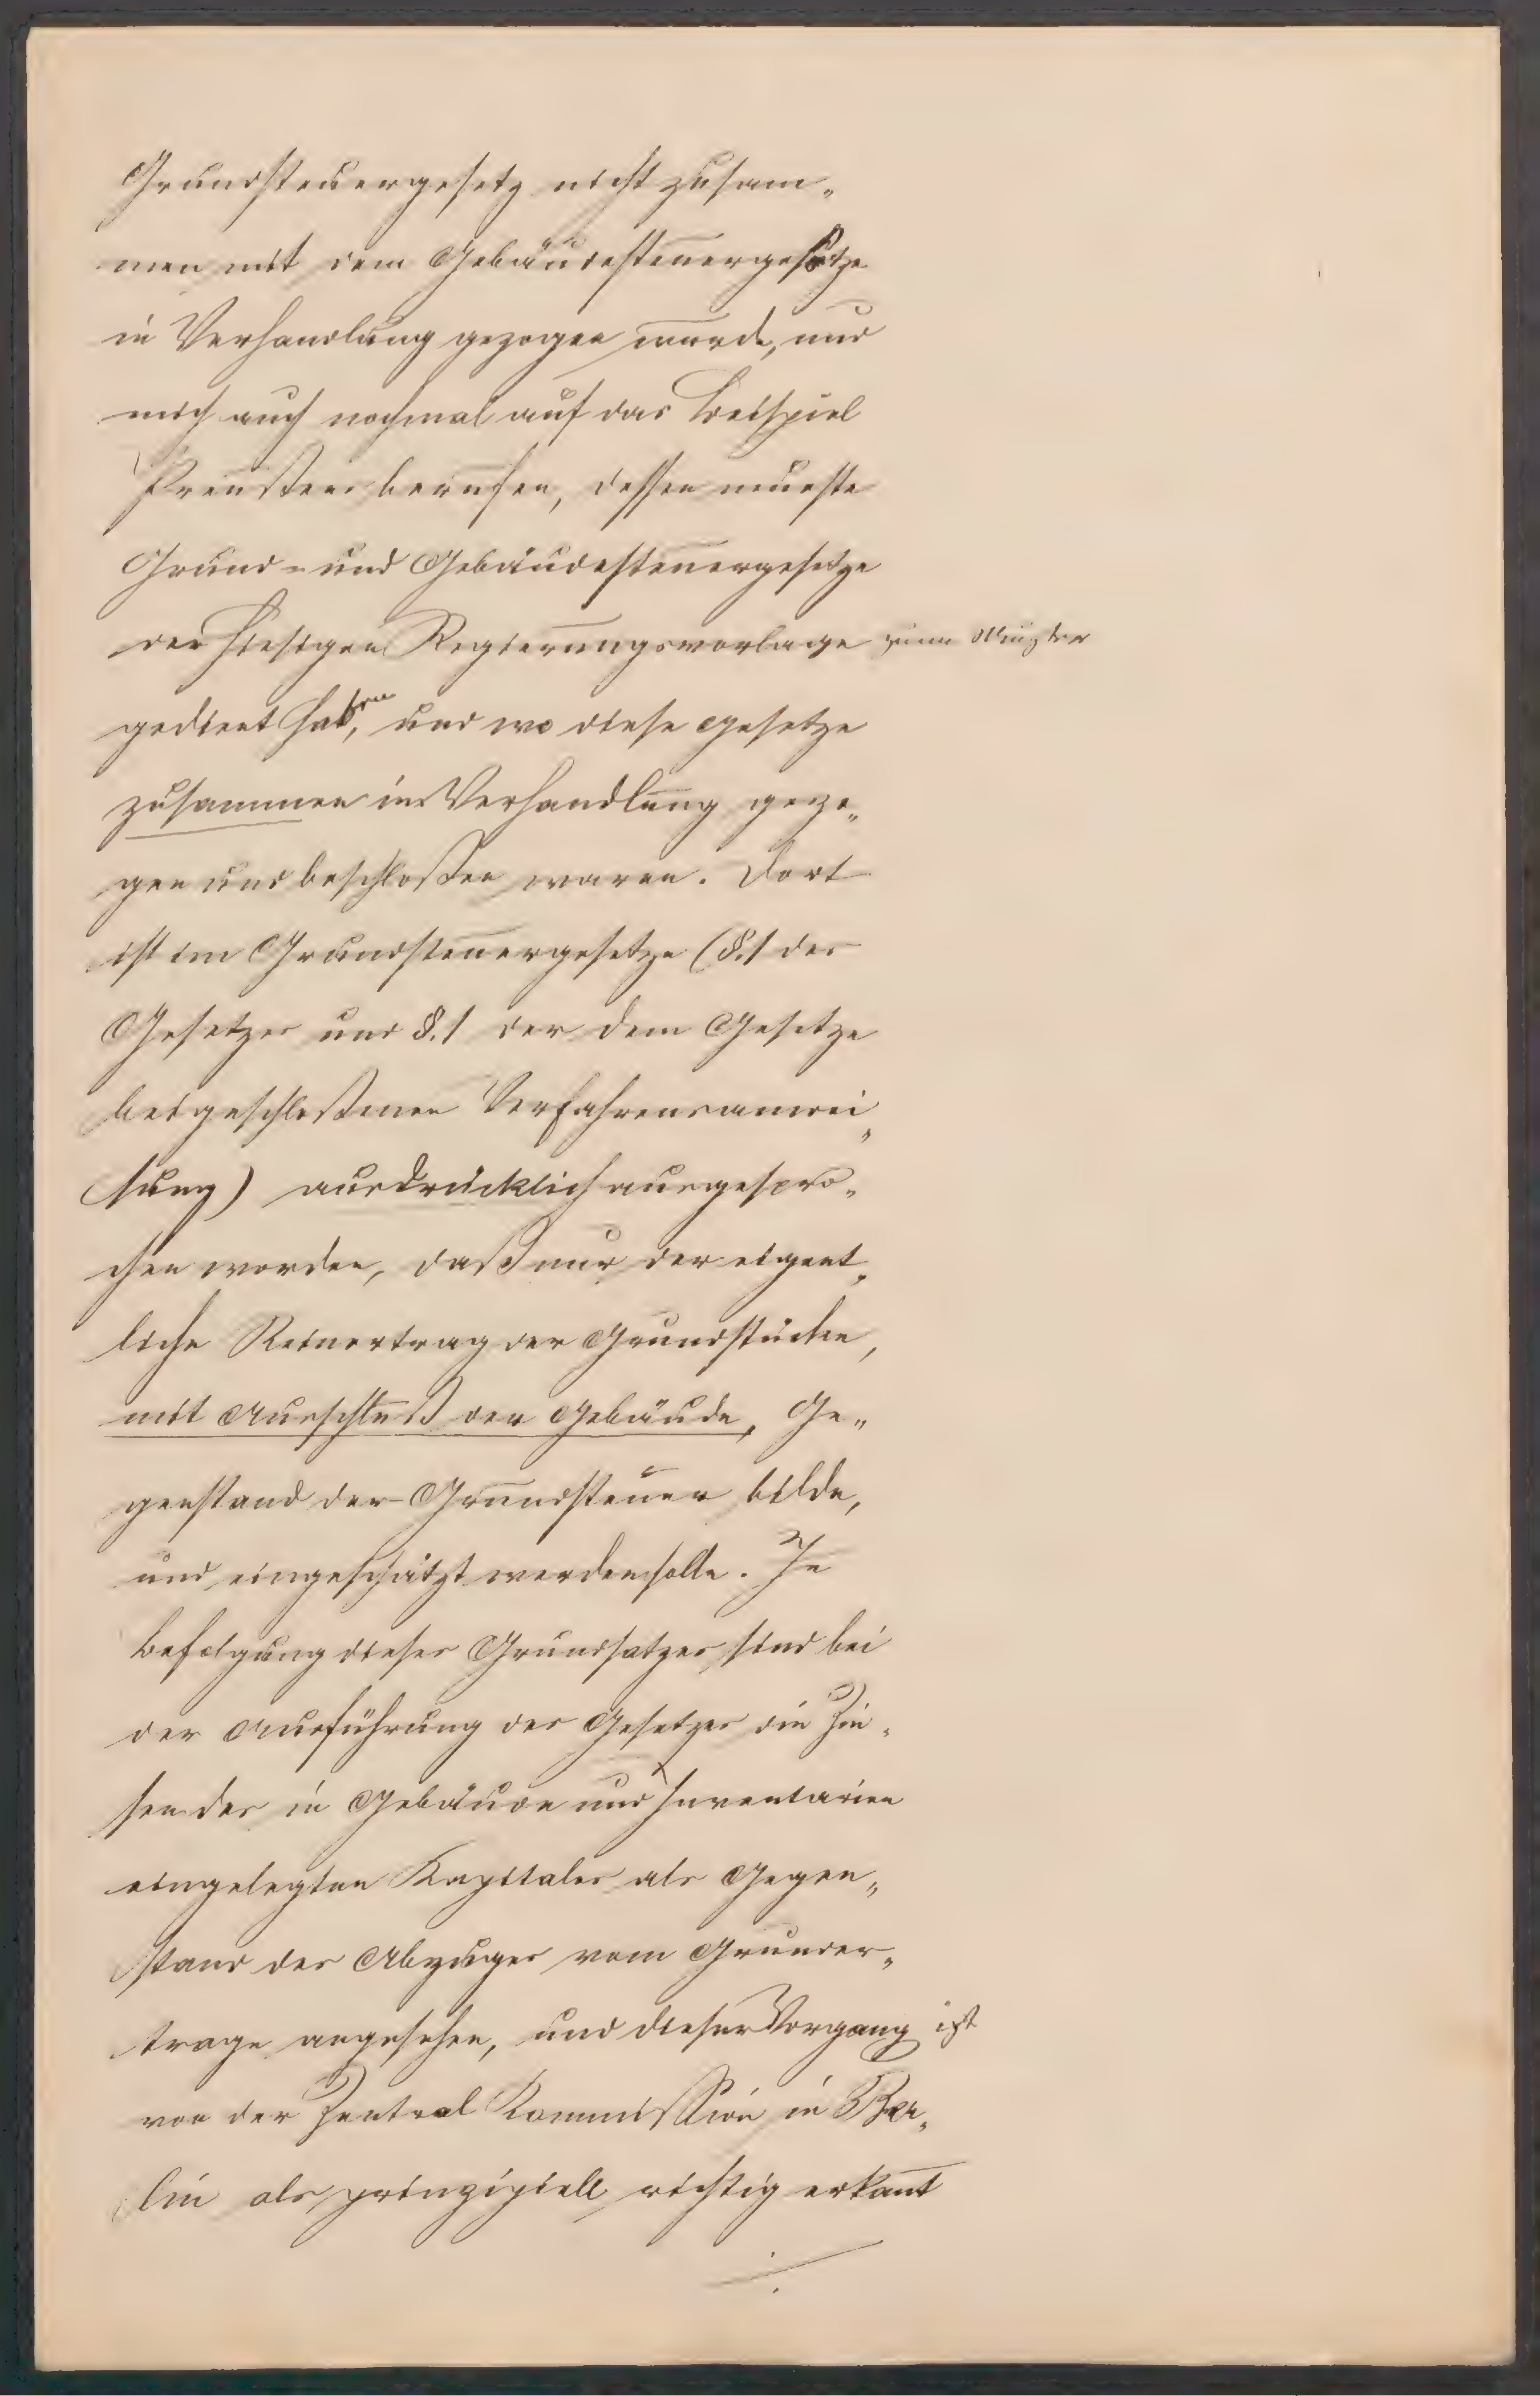 Grundsteuergesetz nicht zusam„
men mit dem Gebäudesteuergesetze
in Verhandlung gezogen wurde, und
mich auch nochmal auf das Beispiel
Preußens berufen, dessen neueste
Grund- und Gebäudesteuergesetze
der hiesigen Regierungsvorlage zum Muster
gedient haben, und wo diese Gesetze
zusammen in Verhandlung gezo„
gen und beschloßen waren. Dort
ist im Grundsteuergesetze (§.1 des
Gesetzes und §.1 der dem Gesetze
beigeschloßenen Verfahrensanwei„
sung) ausdrücklich ausgespro„
chen worden, daß nur der eigent„
liche Reinertrag der Grundstücke,
mit Ausschluß der Gebäude, Ge„
genstand der Grundsteuer bilde,
und eingeschätzt werden solle. In
Befolgung dieses Grundsatzes sind bei
der Ausführung des Gesetzes die Zin„
sen des in Gebäude und Inventarien
eingelegten Kapitales als Gegen„
stand des Abzuges vom Grunder„
trage angesehen, und dieser Vorgang ist
von der Zentral Kommission in Ber„
lin als prinzipiell richtig erkannt